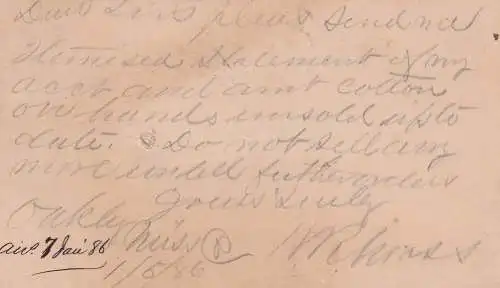 Dear Sirs please send me
Itemised Statement of my
acct and amt cotton
on hands unsold up to
date. Do not sell any
more untill further orders
Yours truly
Oakley Miss
ans. 7 Jan 86
1/5/86